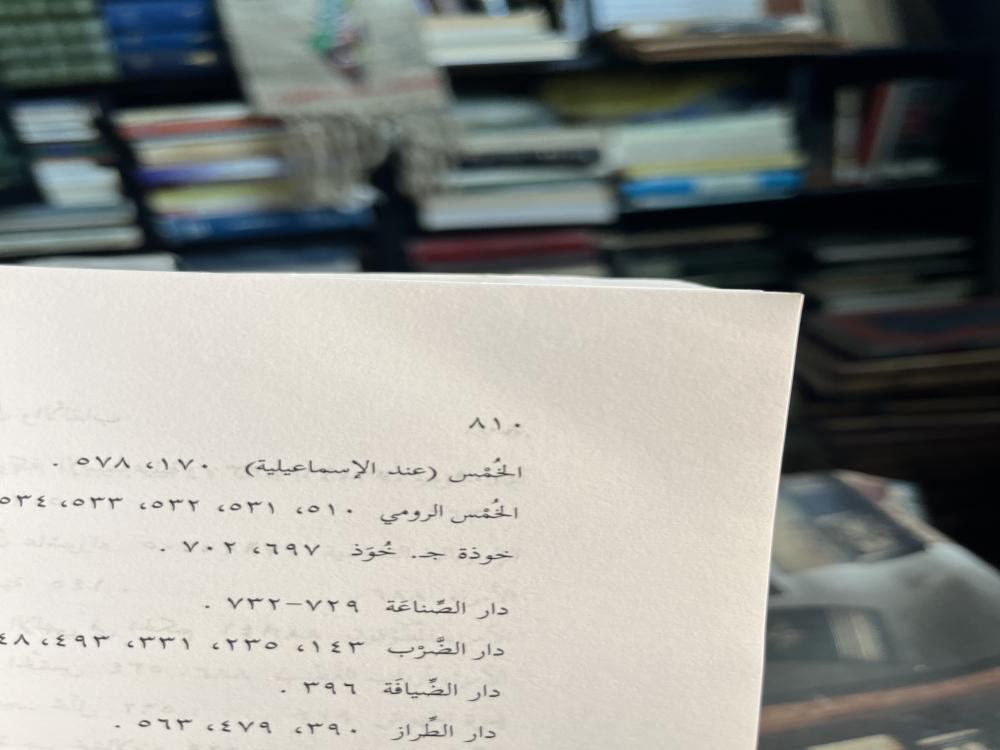 ٨١٠
الخُمْس (عند الإسماعيلية) ١٧٠، ٥٧٨ .
الخُمْس الرومي ٥١٠، ٥٣١، ٥٣٢، ٥٣٣، ٥٣٤
خوذة جـ. خُوَذ ٦٩٧، ٧٠٢ .
دار الصِّناعَة ٧٢٩–٧٣٢ .
دار الضَّرْب ١٤٣، ٢٣٥، ٣٣١، ٤٩٣،
دار الضِّيافَة ٣٩٦ .
دار الطِّراز ٣٩٠، ٤٧٩، ٥٦٣ .